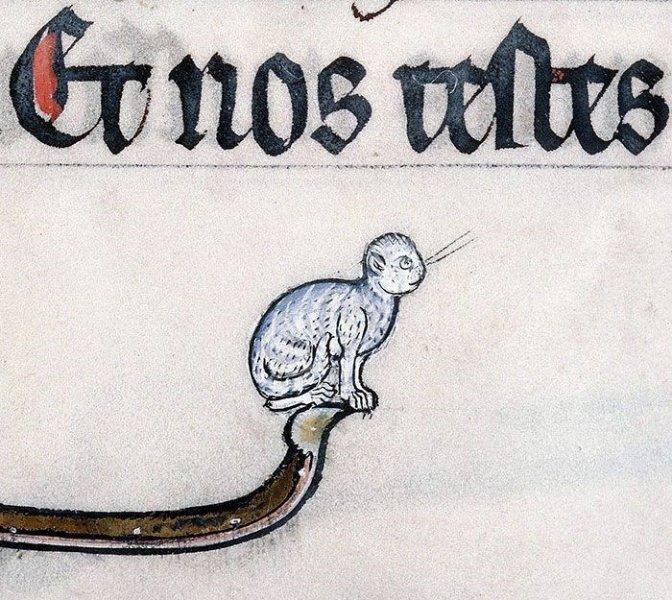 Et nos teſtes